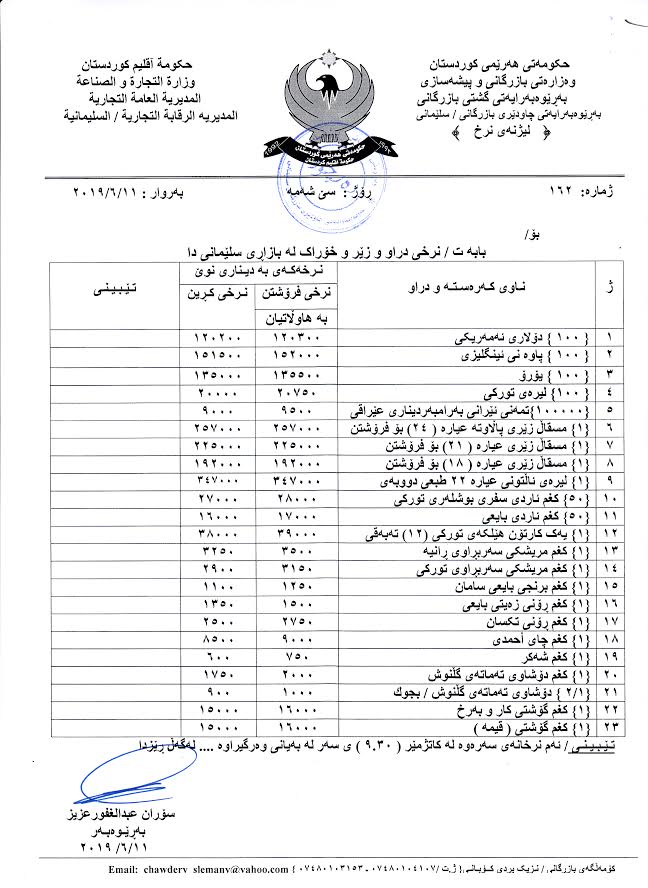 حکومەتی هەرێمی کوردستان
وەزارەتی بازرگانی و پیشەسازی
بەڕێوەبەرایەتی گشتی بازرگانی
بەڕێوەبەرایەتی چاودێری بازرگانی / سلێمانی
﴿ لیژنەی نرخ ﴾
حكومة أقليم كوردستان
وزارة التجارة و الصناعة
المديرية العامة التجارية
المديريه الرقابة التجارية / السليمانية
حکومەتی هەرێمی کوردستان
حكومة اقليم كردستان
١٩٩٢
ژمارە: ١٦٢ ڕۆژ : سێ شەمە بەروار : ٢٠١٩/٦/١١
بۆ/
بابە ت / نرخی دراو و زێر و خۆراک لە بازاری سلێمانی دا
ژ ناوی کەرەستە و دراو نرخەکەی بە دیناری نوێ تێبینی
نرخی فرۆشتن بە هاوڵاتیان نرخی کڕین
١ { ١٠٠ } دۆلاری ئەمەریکی ١٢٠٣٠٠ ١٢٠٢٠٠
٢ { ١٠٠ } پاوە نی ئینگلیزی ١٥٢٠٠٠ ١٥١٥٠٠
٣ { ١٠٠ } یۆرۆ ١٣٥٥٠٠ ١٣٥٠٠٠
٤ { ١٠٠} لیرەی تورکی ٢٠٧٥٠ ٢٠٠٠٠
٥ {١٠٠٠٠٠}تمەنی ئێرانی بەرامبەردیناری عێراقی ٩٥٠٠ ٩٠٠٠
٦ {١} مسقاڵ زێری پاڵاوتە عیارە ( ٢٤ ) بۆ فرۆشتن ٢٥٧٠٠٠ ٢٥٧٠٠٠
٧ {١} مسقاڵ زێری عیارە ( ٢١ ) بۆ فرۆشتن ٢٢٥٠٠٠ ٢٢٥٠٠٠
٨ {١} مسقاڵ زێری عیارە ( ١٨ ) بۆ فرۆشتن ١٩٢٠٠٠ ١٩٢٠٠٠
٩ {١} لیرەی ئاڵتونی عیارە ٢٢ طبعی دووبەی ٣٤٧٠٠٠ ٣٤٧٠٠٠
١٠ {٥٠} کغم ئاردی سفری بوشلەری تورکی ٢٨٠٠٠ ٢٧٠٠٠
١١ {٥٠} کغم ئاردی بایعی ١٧٠٠٠ ١٦٠٠٠
١٢ {١} یەک کارتۆن هێلکەی تورکی (١٢) تەبەقی ٣٩٠٠٠ ٣٨٠٠٠
١٣ {١} کغم مریشکی سەربڕاوی ڕانیە ٣٥٠٠ ٣٢٥٠
١٤ {١} کغم مریشکی سەربڕاوی تورکی ٣١٥٠ ٢٩٠٠
١٥ {١} کغم برنجی بایعی سامان ١٢٥٠ ١١٠٠
١٦ {١} کغم ڕۆنی زەیتی بایعی ١٥٠٠ ١٣٥٠
١٧ {١} کغم ڕۆنی تکسان ٢٧٥٠ ٢٥٠٠
١٨ {١} کغم چای أحمدی ٩٠٠٠ ٨٥٠٠
١٩ {١} کغم شەکر ٧٥٠ ٦٠٠
٢٠ {١} کغم دۆشاوی تەماتەی گڵنوش ٢٠٠٠ ١٧٥٠
٢١ { ٢/١} دۆشاوی تەماتەی گڵنوش / بجوك ١٠٠٠ ٩٠٠
٢٢ {١} کغم گۆشتی کار و بەرخ ١٦٠٠٠ ١٥٠٠٠
٢٣ {١} کغم گۆشتی ( قیمە ) ١٦٠٠٠ ١٥٠٠٠
تێبینی / ئەم نرخانەی سەرەوە لە کاتژمێر ( ٩.٣٠ ) ی سەر لە بەیانی وەرگیراوە .... لەگەڵ ڕێزدا
سۆران عبدالغفورعزیز
بەڕێوەبەر
٢٠١٩ /٦/١١
کۆمەڵگەی بازرگانی / نزیک بردی کۆبانی { ژ.ت / ٠٧٤٨٠١٠٤١٠٧ ـ ٠٧٤٨٠١٠٣١٥٣ } Email: chawdery_slemany@yahoo.com